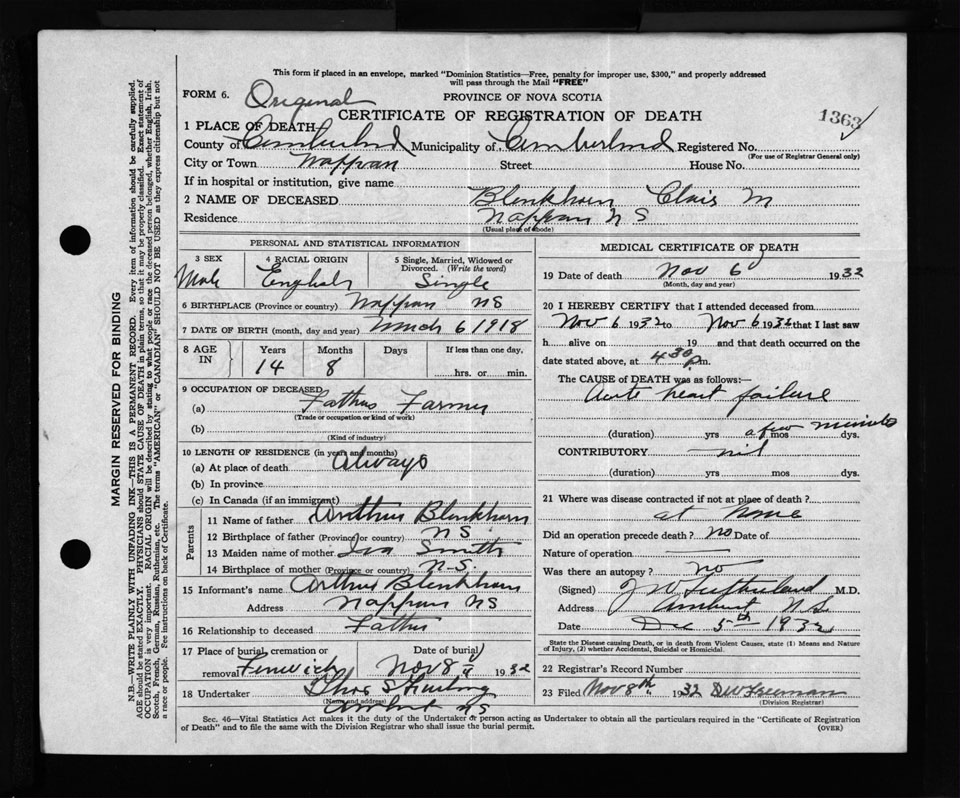 This form if placed in an envelope, marked "Dominion Statistics—Free, penalty for improper use, $300," and properly addressed
will pass through the Mail "FREE"
FORM 6. Original
PROVINCE OF NOVA SCOTIA
CERTIFICATE OF REGISTRATION OF DEATH
1363
1 PLACE OF DEATH
County of Cumberland Municipality of Cumberland Registered No.
(For use of Registrar General only)
City or Town Nappan Street House No.
If in hospital or institution, give name
2 NAME OF DECEASED Blenkhorn Clair M
Residence Nappan N S
(Usual place of abode)
PERSONAL AND STATISTICAL INFORMATION
3 SEX Male
4 RACIAL ORIGIN English
5 Single, Married, Widowed or Divorced. (Write the word) Single
6 BIRTHPLACE (Province or country) Nappan NS
7 DATE OF BIRTH (month, day and year) March 6 1918
8 AGE IN Years Months Days If less than one day,
14 8 hrs. or min.
9 OCCUPATION OF DECEASED
(a) Fathers Farmer
(Trade or occupation or kind of work)
(b)
(Kind of industry)
10 LENGTH OF RESIDENCE (in years and months)
(a) At place of death Always
(b) In province
(c) In Canada (if an immigrant)
Parents
11 Name of father Arthur Blenkhorn
12 Birthplace of father (Province or country) N S
13 Maiden name of mother Iva Smith
14 Birthplace of mother (Province or country) N.S.
15 Informant's name Arthur Blenkhorn
Address Nappan NS
16 Relationship to deceased Father
17 Place of burial, cremation or removal Fenwick
Date of burial Nov 8 1932
18 Undertaker Thos S
(Name and address)
Amherst NS
MEDICAL CERTIFICATE OF DEATH
19 Date of death Nov 6 1932
(Month, day and year)
20 I HEREBY CERTIFY that I attended deceased from
Nov 6 1932 to Nov 6 1932 that I last saw
h alive on 19 and that death occurred on the
date stated above, at 4 30 pm.
The CAUSE of DEATH was as follows:—
Acute heart failure
(duration) yrs a few mos minutes dys.
CONTRIBUTORY nil
(duration) yrs mos dys.
21 Where was disease contracted if not at place of death?
at home
Did an operation precede death? no Date of
Nature of operation
Was there an autopsy? no
(Signed) J W Sutherland M.D.
Address Amherst N.S.
Date Dec 5th 1932
State the Disease causing Death, or in death from Violent Causes, state (1) Means and Nature
of Injury, (2) whether Accidental, Suicidal or Homicidal.
22 Registrar's Record Number
23 Filed Nov 8th 1932 D W Freeman
(Division Registrar)
Sec. 46—Vital Statistics Act makes it the duty of the Undertaker or person acting as Undertaker to obtain all the particulars required in the "Certificate of Registration
of Death" and to file the same with the Division Registrar who shall issue the burial permit.
(OVER)
MARGIN RESERVED FOR BINDING
N.B.—WRITE PLAINLY WITH UNFADING INK—THIS IS A PERMANENT RECORD. Every item of information should be carefully supplied.
AGE should be stated EXACTLY. PHYSICIANS should STATE CAUSE OF DEATH in plain terms, so that it may be properly classified. Exact statement of
OCCUPATION is very important. RACIAL ORIGIN will be described by stating to what people or race the deceased person belonged, whether English, Irish,
Scotch, French, German, Russian, Ruthenian, etc. The terms "AMERICAN" or "CANADIAN" SHOULD NOT BE USED as they express citizenship but not
a race or people. See instructions on back of Certificate.